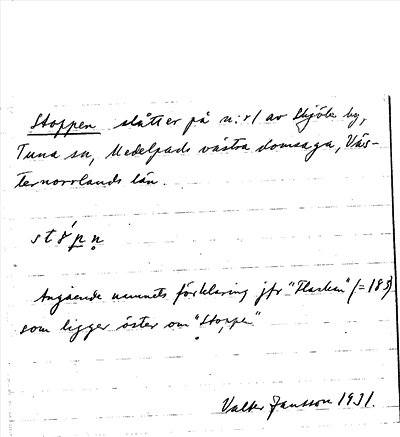 Stoppen slåtter på n:r 1 av Skjöle by,
Tuna sn, Medelpads västra domsaga, Väs-
ternorrlands län.
Angående namnets förklaring jfr "Flaskan" (= 183)
som ligger öster om "Stoppen"
Valter Jansson 1931.